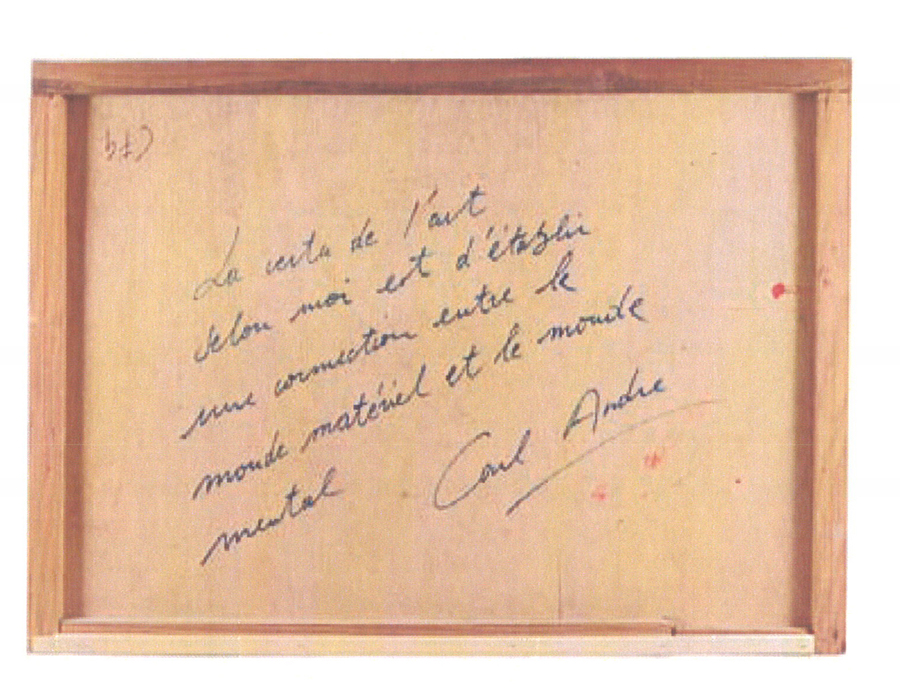 La vertu de l'art
selon moi est d'établir
une connection entre le
monde matériel et le monde
mental Carl Andre